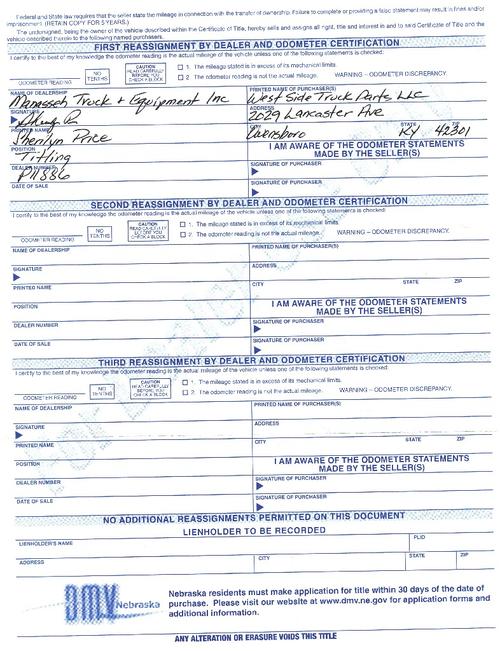 Federal and State law requires that the seller state the mileage in connection with the transfer of ownership. Failure to complete or providing a false statement may result in fines and/or
imprisonment (RETAIN COPY FOR 5 YEARS.)
The undersigned, being the owner of the vehicle described within the Certificate of Title, hereby sells and assigns all right, title and interest in and to said Certificate of Title and the
vehicle described herein to the following named purchasers.
FIRST REASSIGNMENT BY DEALER AND ODOMETER CERTIFICATION
I certify to the best of my knowledge the odometer reading is the actual mileage of the vehicle unless one of the following statements is checked:
ODOMETER READING
NO TENTHS
CAUTION READ CAREFULLY BEFORE YOU CHECK A BLOCK
1. The mileage stated is in excess of its mechanical limits.
2. The odometer reading is not the actual mileage. WARNING - ODOMETER DISCREPANCY.
NAME OF DEALERSHIP
Manasseh Truck + Equipment Inc
PRINTED NAME OF PURCHASER(S)
West Side Truck Parts LLC
SIGNATURE
ADDRESS
2029 Lancaster Ave
PRINTED NAME
Sherlyn Price
CITY STATE ZIP
Owensboro KY 42301
POSITION
Titling
I AM AWARE OF THE ODOMETER STATEMENTS
MADE BY THE SELLER(S)
DEALER NUMBER
SIGNATURE OF PURCHASER
DATE OF SALE
SIGNATURE OF PURCHASER
SECOND REASSIGNMENT BY DEALER AND ODOMETER CERTIFICATION
I certify to the best of my knowledge the odometer reading is the actual mileage of the vehicle unless one of the following statements is checked:
ODOMETER READING
NO TENTHS
CAUTION READ CAREFULLY BEFORE YOU CHECK A BLOCK
1. The mileage stated is in excess of its mechanical limits.
2. The odometer reading is not the actual mileage. WARNING - ODOMETER DISCREPANCY.
NAME OF DEALERSHIP
PRINTED NAME OF PURCHASER(S)
SIGNATURE
ADDRESS
PRINTED NAME
CITY STATE ZIP
POSITION
I AM AWARE OF THE ODOMETER STATEMENTS
MADE BY THE SELLER(S)
DEALER NUMBER
SIGNATURE OF PURCHASER
DATE OF SALE
SIGNATURE OF PURCHASER
THIRD REASSIGNMENT BY DEALER AND ODOMETER CERTIFICATION
I certify to the best of my knowledge the odometer reading is the actual mileage of the vehicle unless one of the following statements is checked:
ODOMETER READING
NO TENTHS
CAUTION READ CAREFULLY BEFORE YOU CHECK A BLOCK
1. The mileage stated is in excess of its mechanical limits.
2. The odometer reading is not the actual mileage. WARNING - ODOMETER DISCREPANCY.
NAME OF DEALERSHIP
PRINTED NAME OF PURCHASER(S)
SIGNATURE
ADDRESS
PRINTED NAME
CITY STATE ZIP
POSITION
I AM AWARE OF THE ODOMETER STATEMENTS
MADE BY THE SELLER(S)
DEALER NUMBER
SIGNATURE OF PURCHASER
DATE OF SALE
SIGNATURE OF PURCHASER
NO ADDITIONAL REASSIGNMENTS PERMITTED ON THIS DOCUMENT
LIENHOLDER TO BE RECORDED
LIENHOLDER'S NAME PLID
ADDRESS CITY STATE ZIP
dmv Nebraska
Nebraska residents must make application for title within 30 days of the date of
purchase. Please visit our website at www.dmv.ne.gov for application forms and
additional information.
ANY ALTERATION OR ERASURE VOIDS THIS TITLE